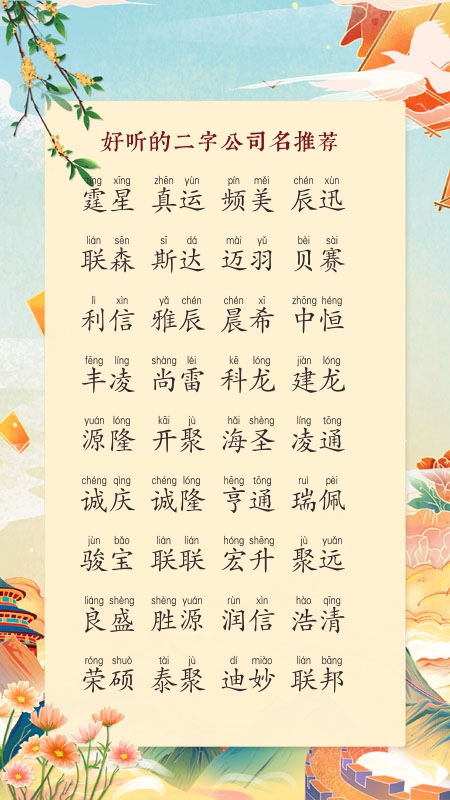 好听的二字公司名推荐
tíng xīng zhēn yùn pín měi chén xùn
霆星 真运 频美 辰迅
lián sēn sī dá mài yǔ bèi sài
联森 斯达 迈羽 贝赛
lì xìn yǎ chén chén xī zhōng héng
利信 雅辰 晨希 中恒
fēng líng shàng léi kē lóng jiàn lóng
丰凌 尚雷 科龙 建龙
yuán lóng kāi jù hǎi shèng líng tōng
源隆 开聚 海圣 凌通
chéng qìng chéng lóng hēng tōng ruì pèi
诚庆 诚隆 亨通 瑞佩
jùn bǎo lián lián hóng shēng jù yuǎn
骏宝 联联 宏升 聚远
liáng shèng shèng yuán rùn xìn hào qīng
良盛 胜源 润信 浩清
róng shuò tài jù dí miào lián bāng
荣硕 泰聚 迪妙 联邦